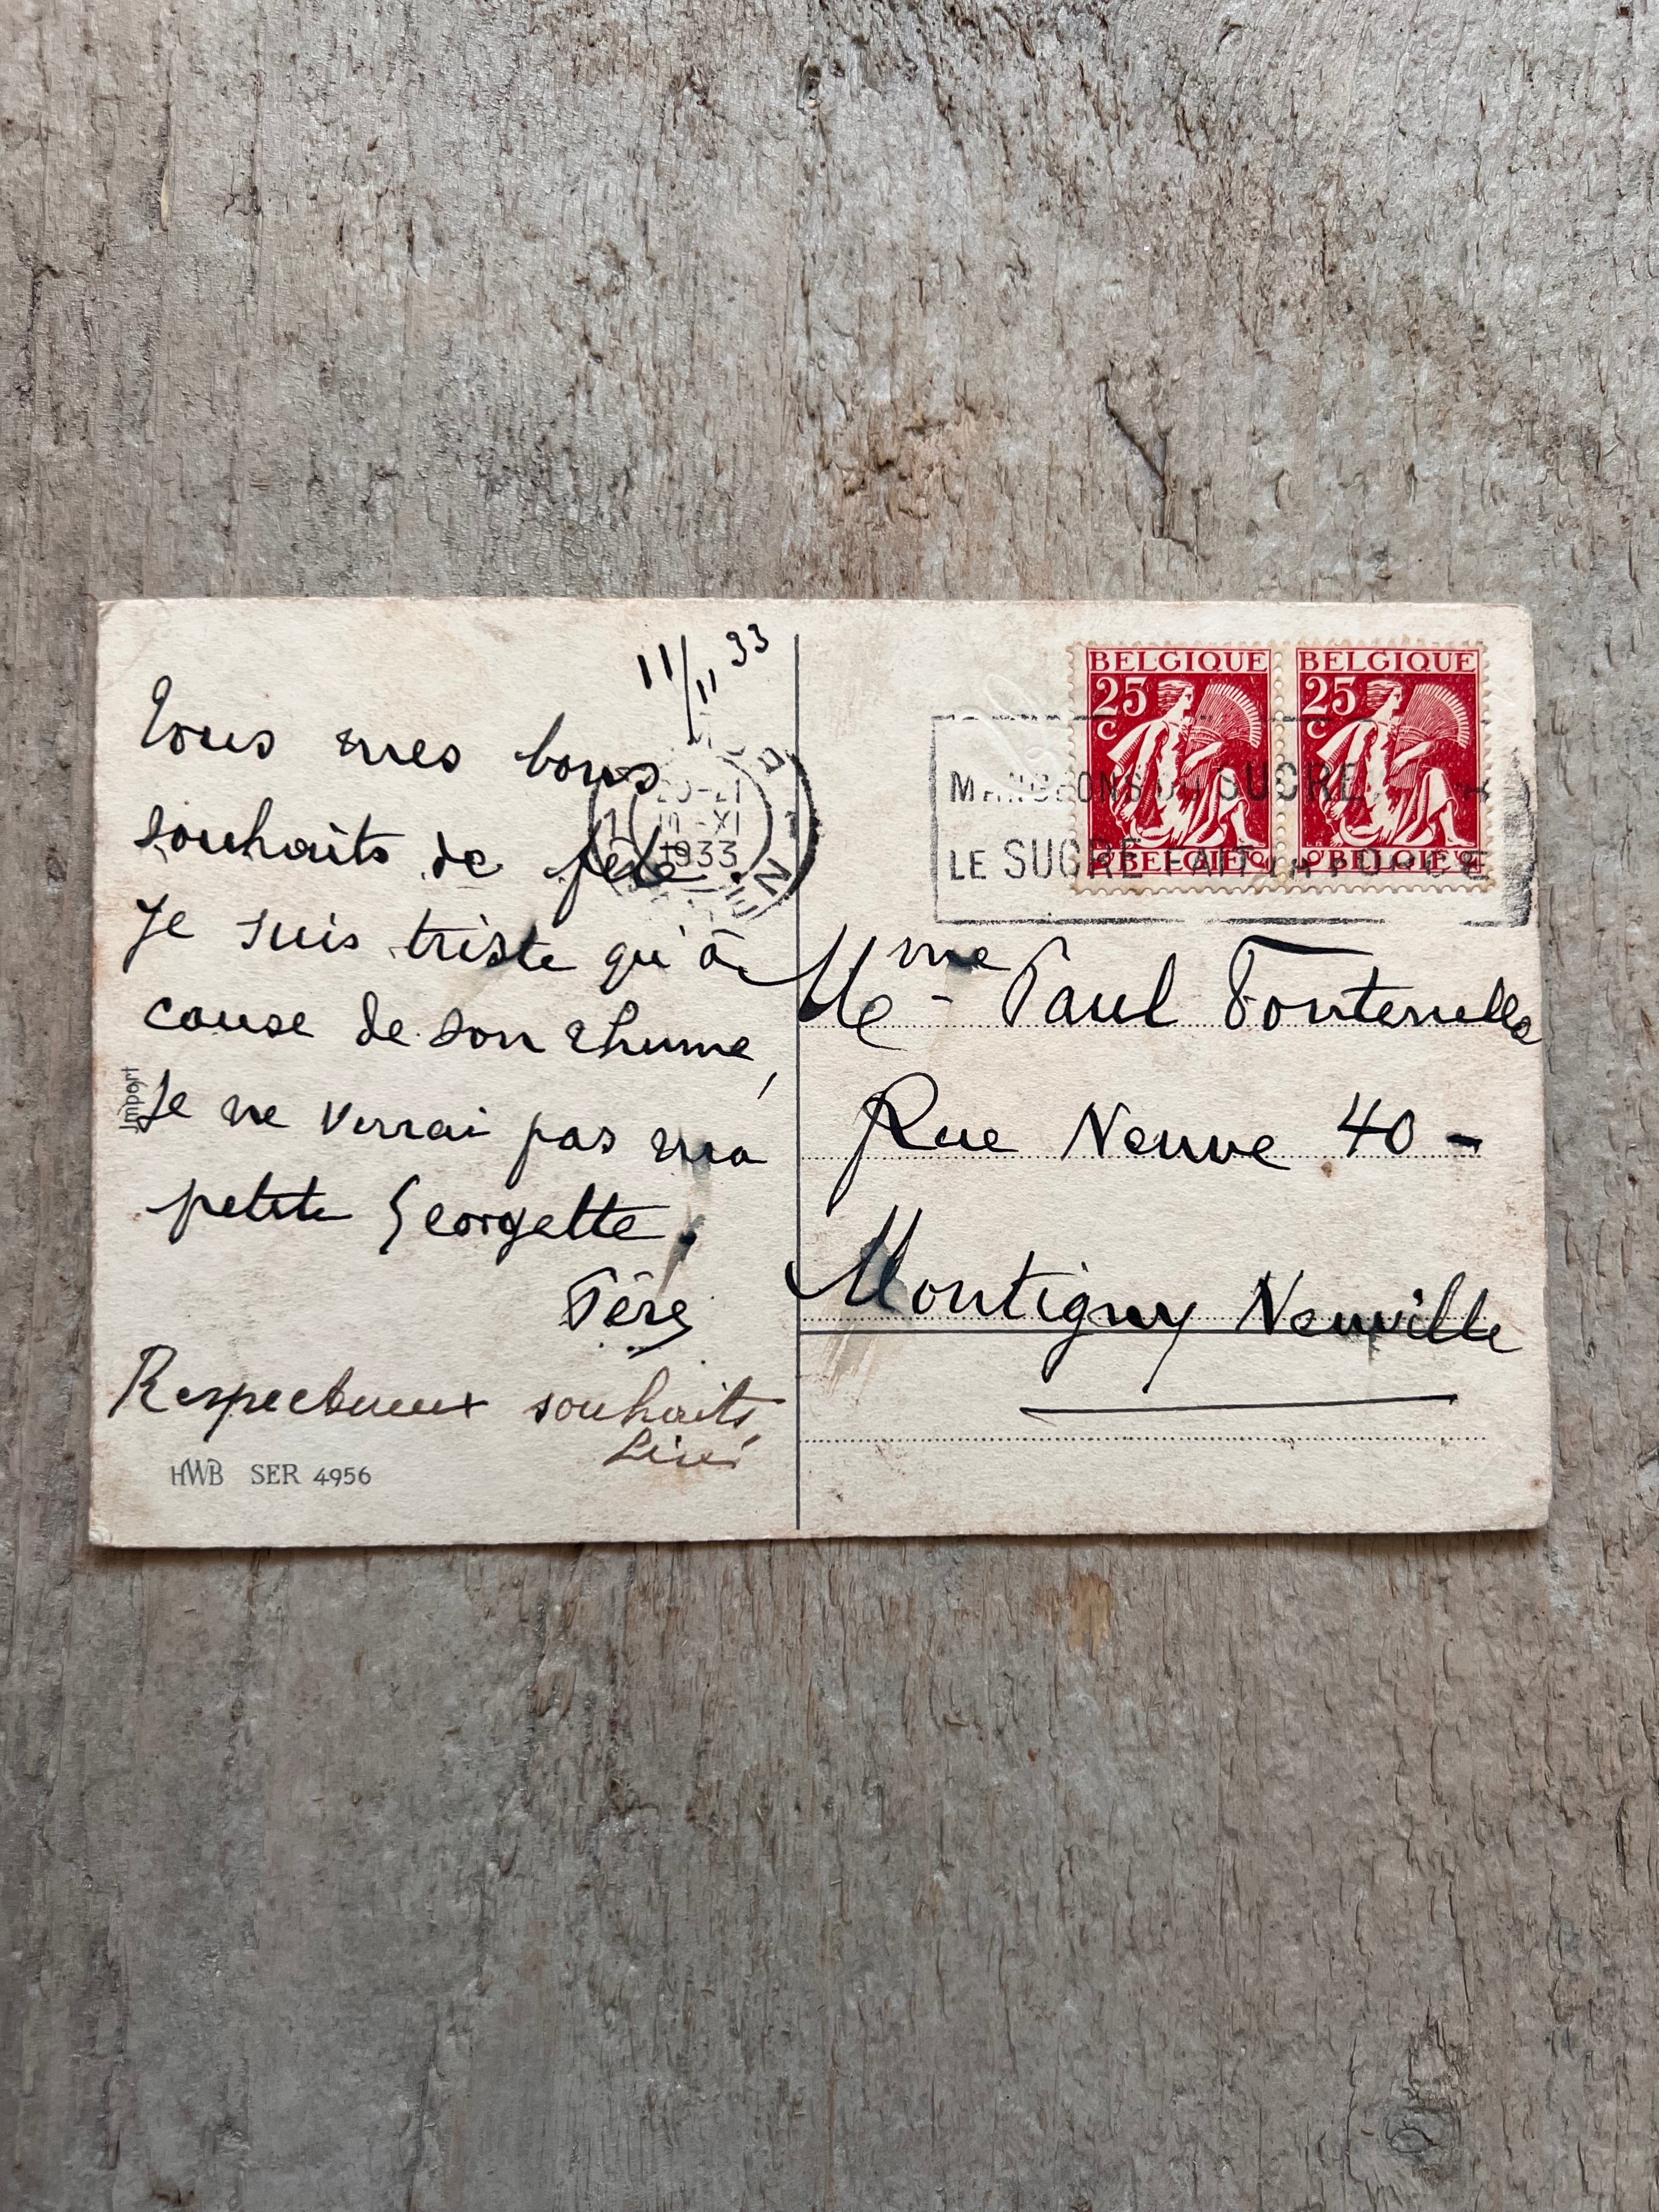 11/11 33
Tous mes bons
souhaits de fête.
Je suis triste qu'à
cause de son rhume,
Je ne verrai pas ma
petite Georgette.
Respectueux souhaits
HWB SER 4956
Import
1933
BELGIQUE
25
C
BELGIE
BELGIQUE
25
C
BELGIE
MANGEONS DU SUCRE
LE SUCRE FAIT LA FORCE
Mme Paul Fontenelle
Rue Neuve 40 -
Montigny Neuville